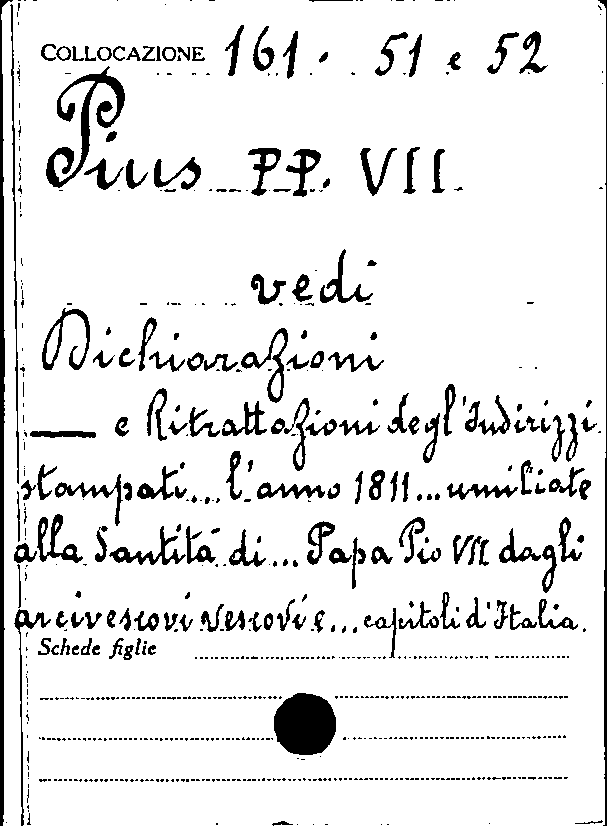 COLLOCAZIONE 161. 51 e 52
Pius PP. VII
vedi
Dichiarazioni
— e Ritrattazioni degl'Indirizzi
stampati... l'anno 1811... umiliate
alla Santità di... Papa Pio VII dagli
arcivescovi vescovi e... capitoli d'Italia.
Schede figlie